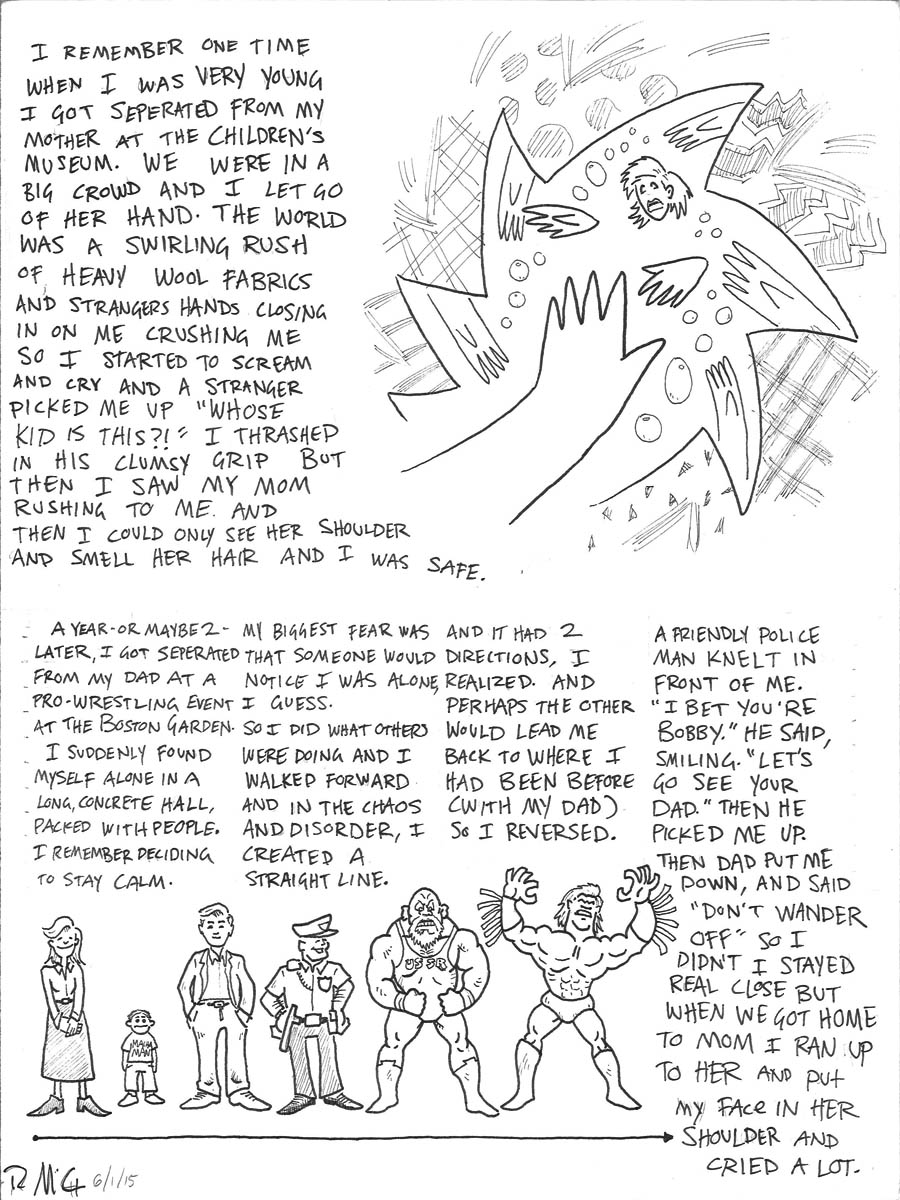 I REMEMBER ONE TIME
WHEN I WAS VERY YOUNG
I GOT SEPERATED FROM MY
MOTHER AT THE CHILDREN'S
MUSEUM. WE WERE IN A
BIG CROWD AND I LET GO
OF HER HAND. THE WORLD
WAS A SWIRLING RUSH
OF HEAVY WOOL FABRICS
AND STRANGERS HANDS CLOSING
IN ON ME CRUSHING ME
SO I STARTED TO SCREAM
AND CRY AND A STRANGER
PICKED ME UP "WHOSE
KID IS THIS?!" I THRASHED
IN HIS CLUMSY GRIP BUT
THEN I SAW MY MOM
RUSHING TO ME. AND
THEN I COULD ONLY SEE HER SHOULDER
AND SMELL HER HAIR AND I WAS SAFE.
A YEAR-OR MAYBE 2-
LATER, I GOT SEPERATED
FROM MY DAD AT A
PRO-WRESTLING EVENT
AT THE BOSTON GARDEN.
I SUDDENLY FOUND
MYSELF ALONE IN A
LONG, CONCRETE HALL,
PACKED WITH PEOPLE.
I REMEMBER DECIDING
TO STAY CALM.
MY BIGGEST FEAR WAS
THAT SOMEONE WOULD
NOTICE I WAS ALONE,
I GUESS.
SO I DID WHAT OTHERS
WERE DOING AND I
WALKED FORWARD
AND IN THE CHAOS
AND DISORDER, I
CREATED A
STRAIGHT LINE.
AND IT HAD 2
DIRECTIONS, I
REALIZED. AND
PERHAPS THE OTHER
WOULD LEAD ME
BACK TO WHERE I
HAD BEEN BEFORE
(WITH MY DAD)
SO I REVERSED.
A FRIENDLY POLICE
MAN KNELT IN
FRONT OF ME.
"I BET YOU'RE
BOBBY." HE SAID,
SMILING. "LET'S
GO SEE YOUR
DAD." THEN HE
PICKED ME UP.
THEN DAD PUT ME
DOWN, AND SAID
"DON'T WANDER
OFF" SO I
DIDN'T I STAYED
REAL CLOSE BUT
WHEN WE GOT HOME
TO MOM I RAN UP
TO HER AND PUT
MY FACE IN HER
SHOULDER AND
CRIED A LOT.
MAN
USSR
6/1/15